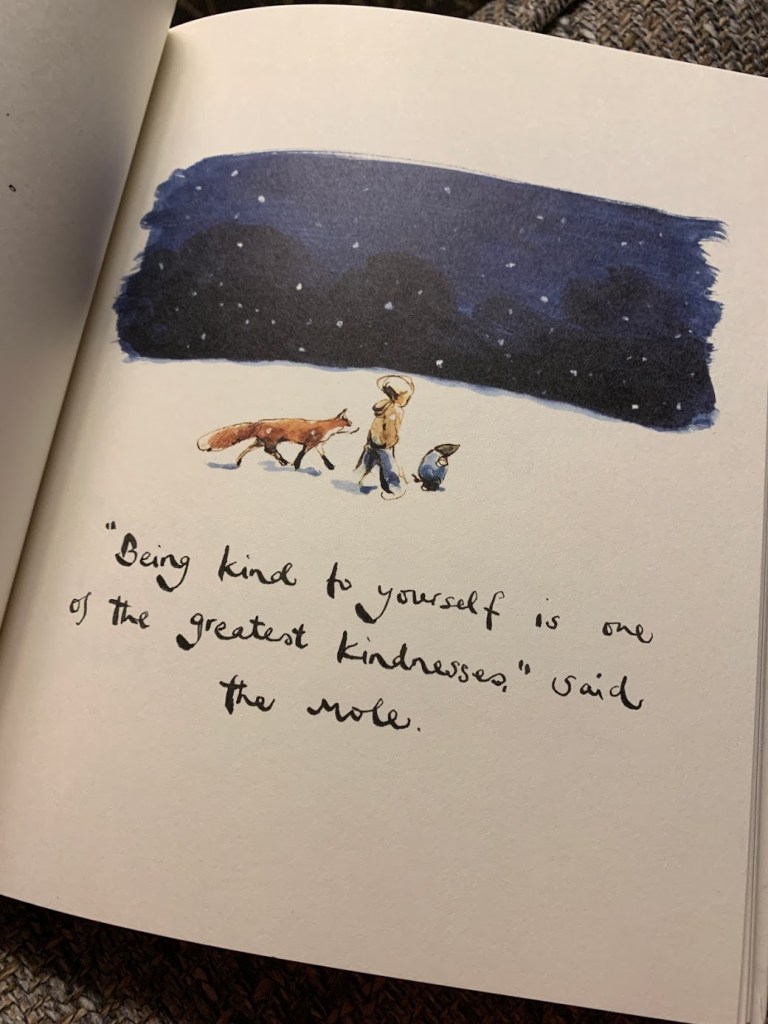 "Being kind to yourself is one
of the greatest kindnesses," said
the mole.